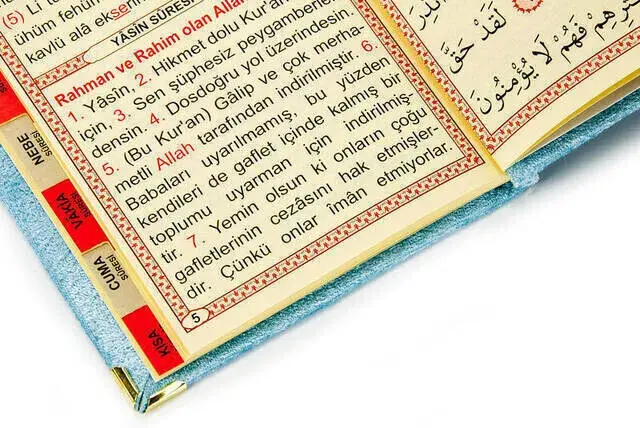 (5) Li t
ühüm fehüm
kavlü alâ ekseri
YÂSÎN SÛRESİ
Rahman ve Rahim olan Allah
1. Yâsîn, 2. Hikmet dolu Kur'an
için, 3. Sen şüphesiz peygamberler
densin. 4. Dosdoğru yol üzerindesin.
5. (Bu Kur'an) Gâlip ve çok merha-
metli Allah tarafından indirilmiştir. 6.
Babaları uyarılmamış, bu yüzden
kendileri de gaflet içinde kalmış bir
toplumu uyarman için indirilmiş-
tir. 7. Yemin olsun ki onların çoğu
gafletlerinin cezâsını hak etmişler-
dir. Çünkü onlar imân etmiyorlar.
5
NEBE
SÛRESİ
VÂKIA
SÛRESİ
CUMA
SÛRESİ
KISA
لَقَدْ حَقَّ
فَهُمْ لَا يُؤْمِنُونَ